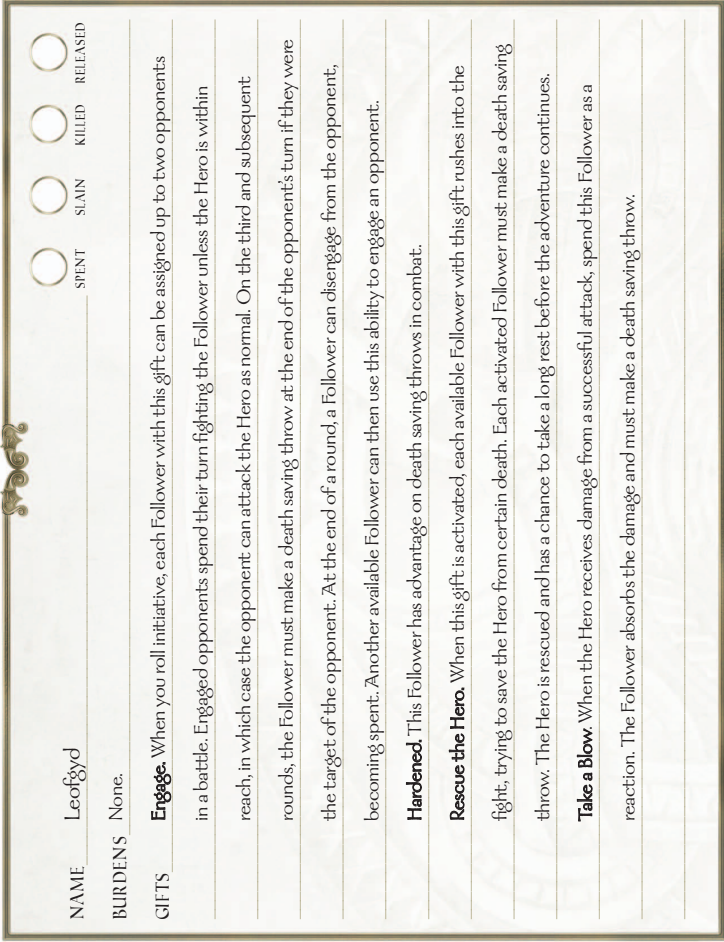 SPENT SLAIN KILLED RELEASED
NAME Leofgyd
BURDENS None.
GIFTS Engage. When you roll initiative, each Follower with this gift can be assigned up to two opponents
in a battle. Engaged opponents spend their turn fighting the Follower unless the Hero is within
reach, in which case the opponent can attack the Hero as normal. On the third and subsequent
rounds, the Follower must make a death saving throw at the end of the opponent's turn if they were
the target of the opponent. At the end of a round, a Follower can disengage from the opponent,
becoming spent. Another available Follower can then use this ability to engage an opponent.
Hardened. This Follower has advantage on death saving throws in combat.
Rescue the Hero. When this gift is activated, each available Follower with this gift rushes into the
fight, trying to save the Hero from certain death. Each activated Follower must make a death saving
throw. The Hero is rescued and has a chance to take a long rest before the adventure continues.
Take a Blow. When the Hero receives damage from a successful attack, spend this Follower as a
reaction. The Follower absorbs the damage and must make a death saving throw.